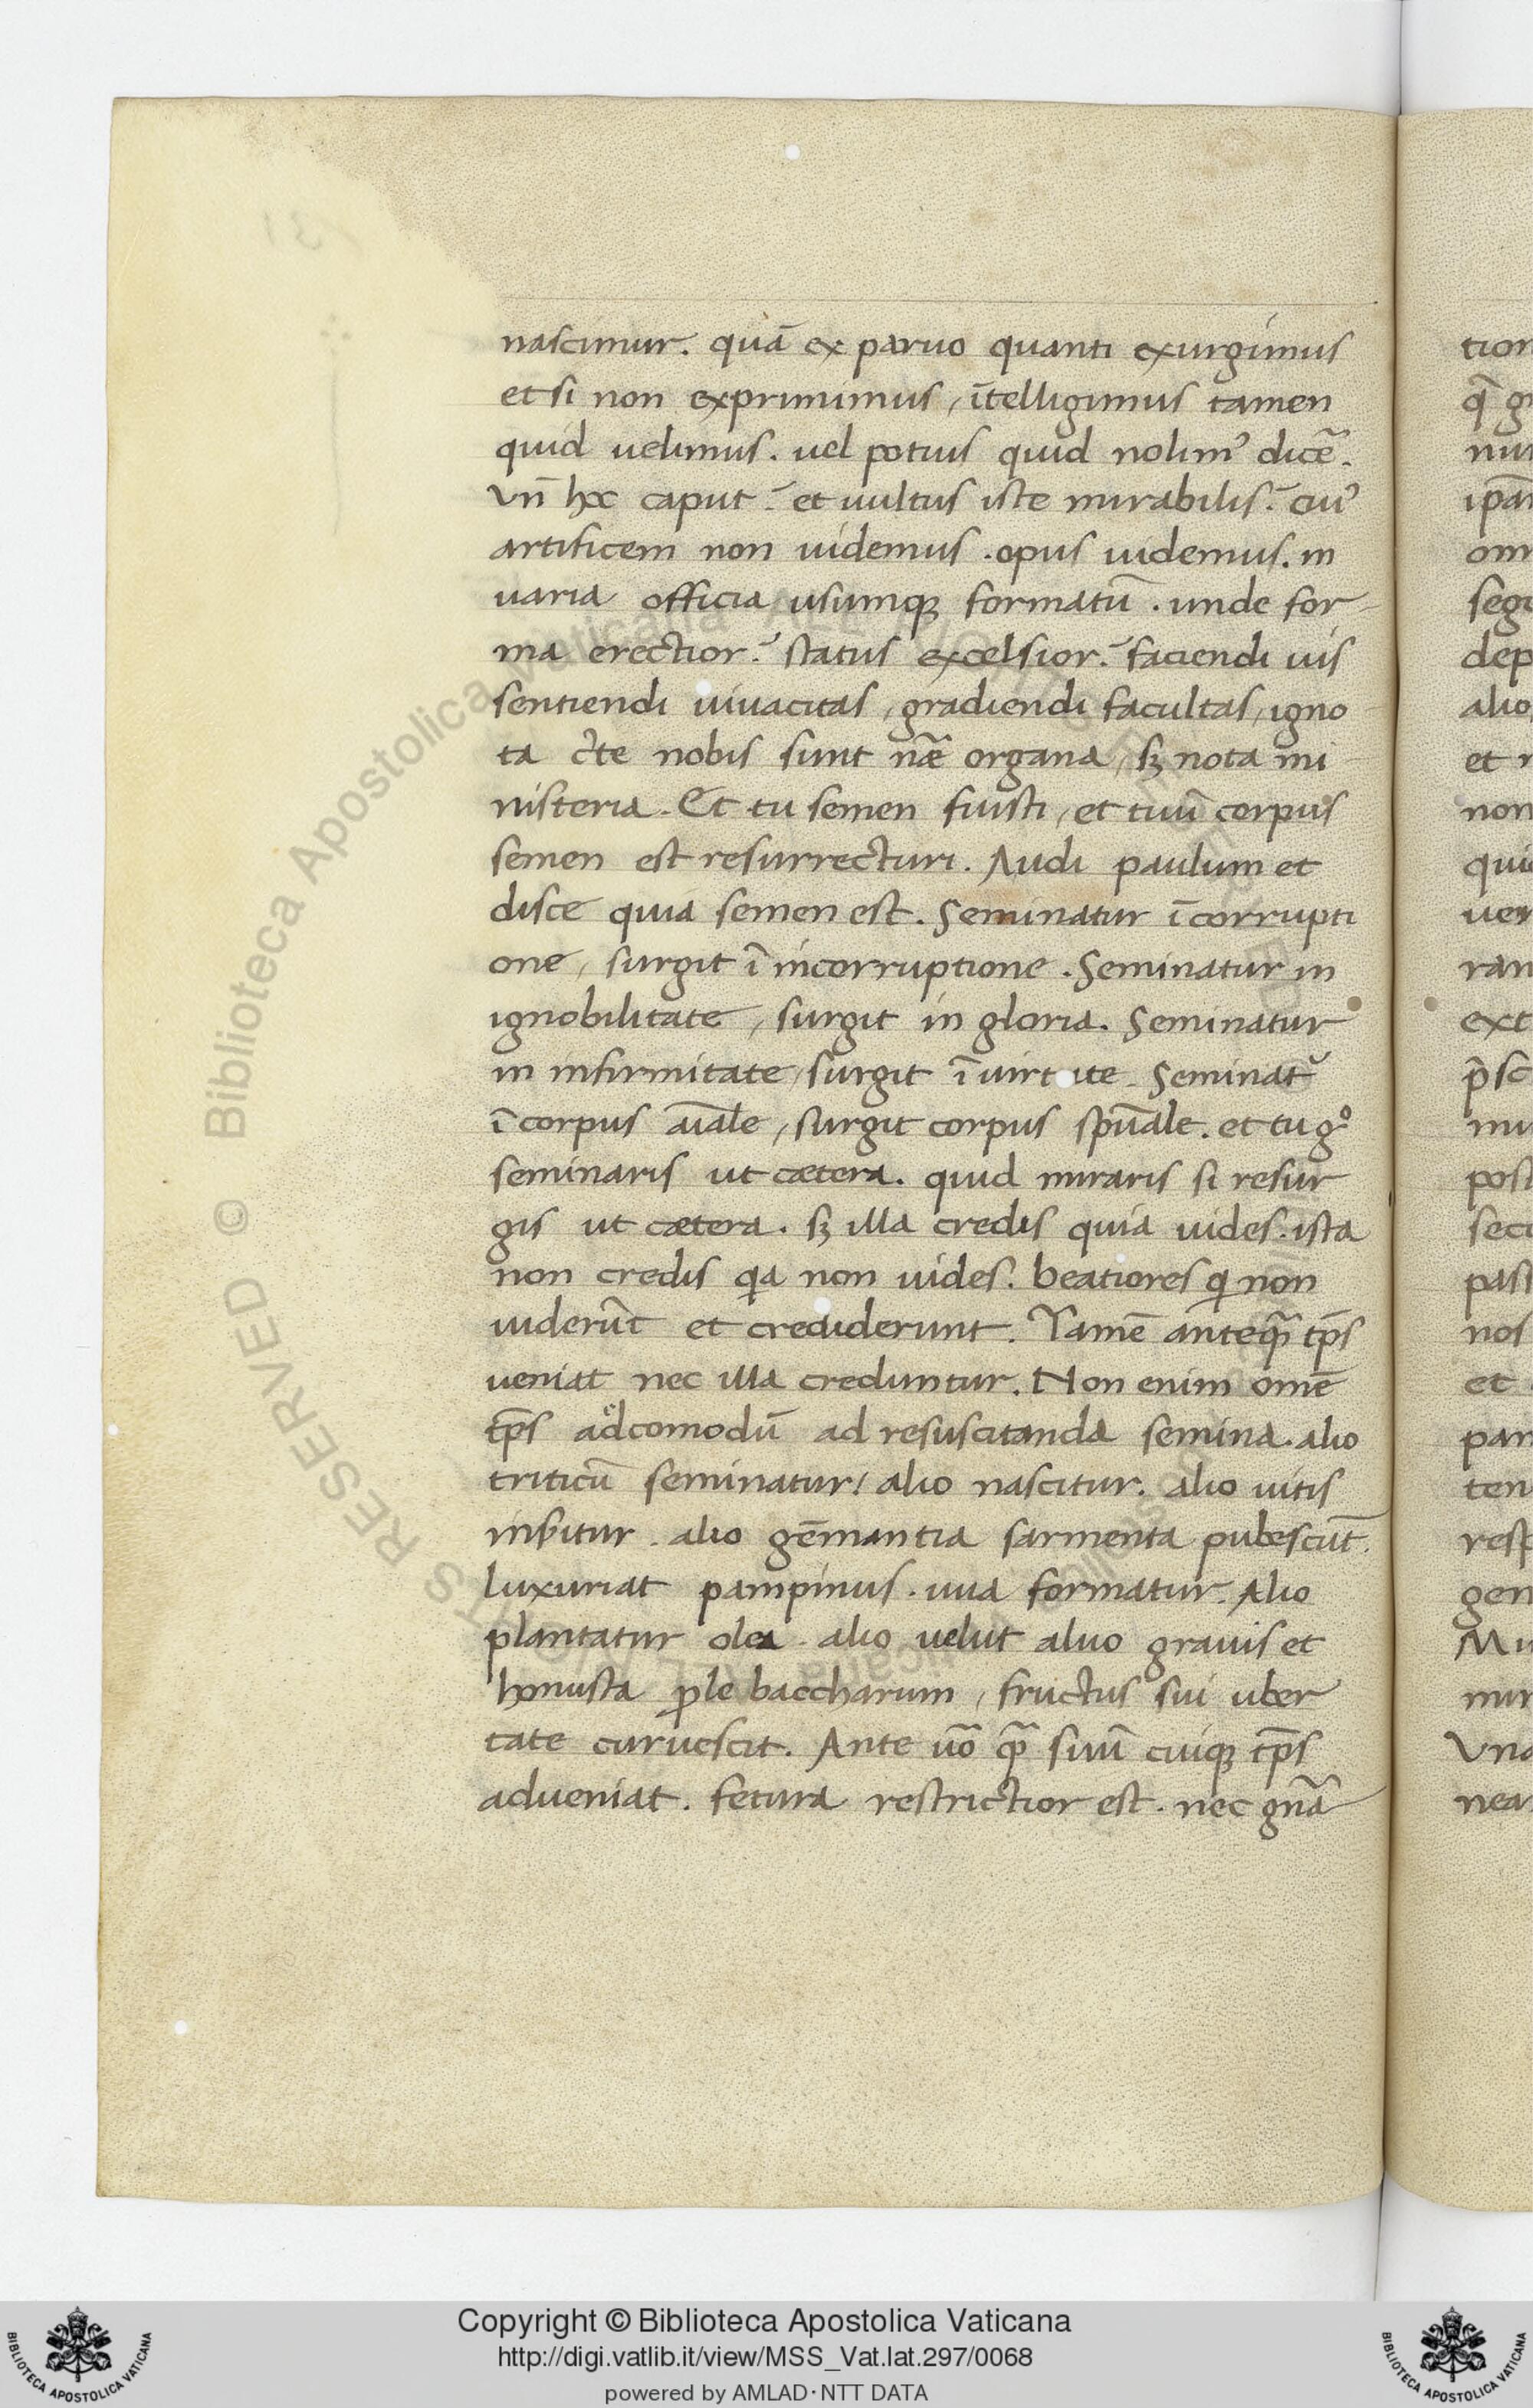 nascimur. quā ex paruo quanti exurgimus
et si non exprimimus, ītelligimus tamen
quid uelimus. uel potius quid nolimꝰ dicē̄.
Vn̄ hoc caput? et uultus iste mirabilis? cuiꝰ
artificem non uidemus. opus uidemus. in
uaria officia usumqꝫ formatū. unde for-
ma erectior? status excelsior? faciendi uis
sentiendi uiuacitas, gradiendi facultas, igno
ta c̄te nobis sunt nāe organa, sꝫ nota mi
nisteria. Et tu semen fuisti, et tuū corpus
semen est resurrecturi. Audi paulum et
disce quia semen est. Seminatur ī corrupti
one, surgit ī incorruptione. Seminatur in
ignobilitate, surgit in gloria. Seminatur
in infirmitate, surgit ī uirtute. Seminat᷑
ī corpus aīale, surgit corpus spūale. et tu gͦ
seminaris ut cætera. quid miraris si resur
gis ut cætera. sꝫ illa credis quia uides. ista
non credis qa non uides. beatiores qi non
uiderūt et crediderunt. Tamē anteqꝫ̄ tp̄s
ueniat nec illa creduntur. Non enim omē
tp̄s adcomodū ad resuscitanda semina. alio
triticū seminatur, alio nascitur. alio uitis
inseritur. alio gēmantia sarmenta pubescūt.
luxuriat pampinus. uua formatur. Alio
plantatur olea. alio uelut aluo grauis et
honusta ꝓle baccharum, fructus sui uber
tate curuescit. Ante uō qꝫ̄ suū cuiqꝫ tp̄s
adueniat. fetura restrictior est. nec gn̄a
tion
q̄
nun
ipā
om
segu
dep
alio
et
non
qui
uer
ran
ext
p̄sc
mu
post
secu
past
nos
et
pan
ten
resp
gen
Mu
mir
Vna
nea
© Biblioteca Apostolica Vaticana ALL RIGHTS RESERVED
Copyright © Biblioteca Apostolica Vaticana
http://digi.vatlib.it/view/MSS_Vat.lat.297/0068
powered by AMLAD·NTT DATA
BIBLIOTECA APOSTOLICA VATICANA
BIBLIOTECA APOSTOLICA VATICANA